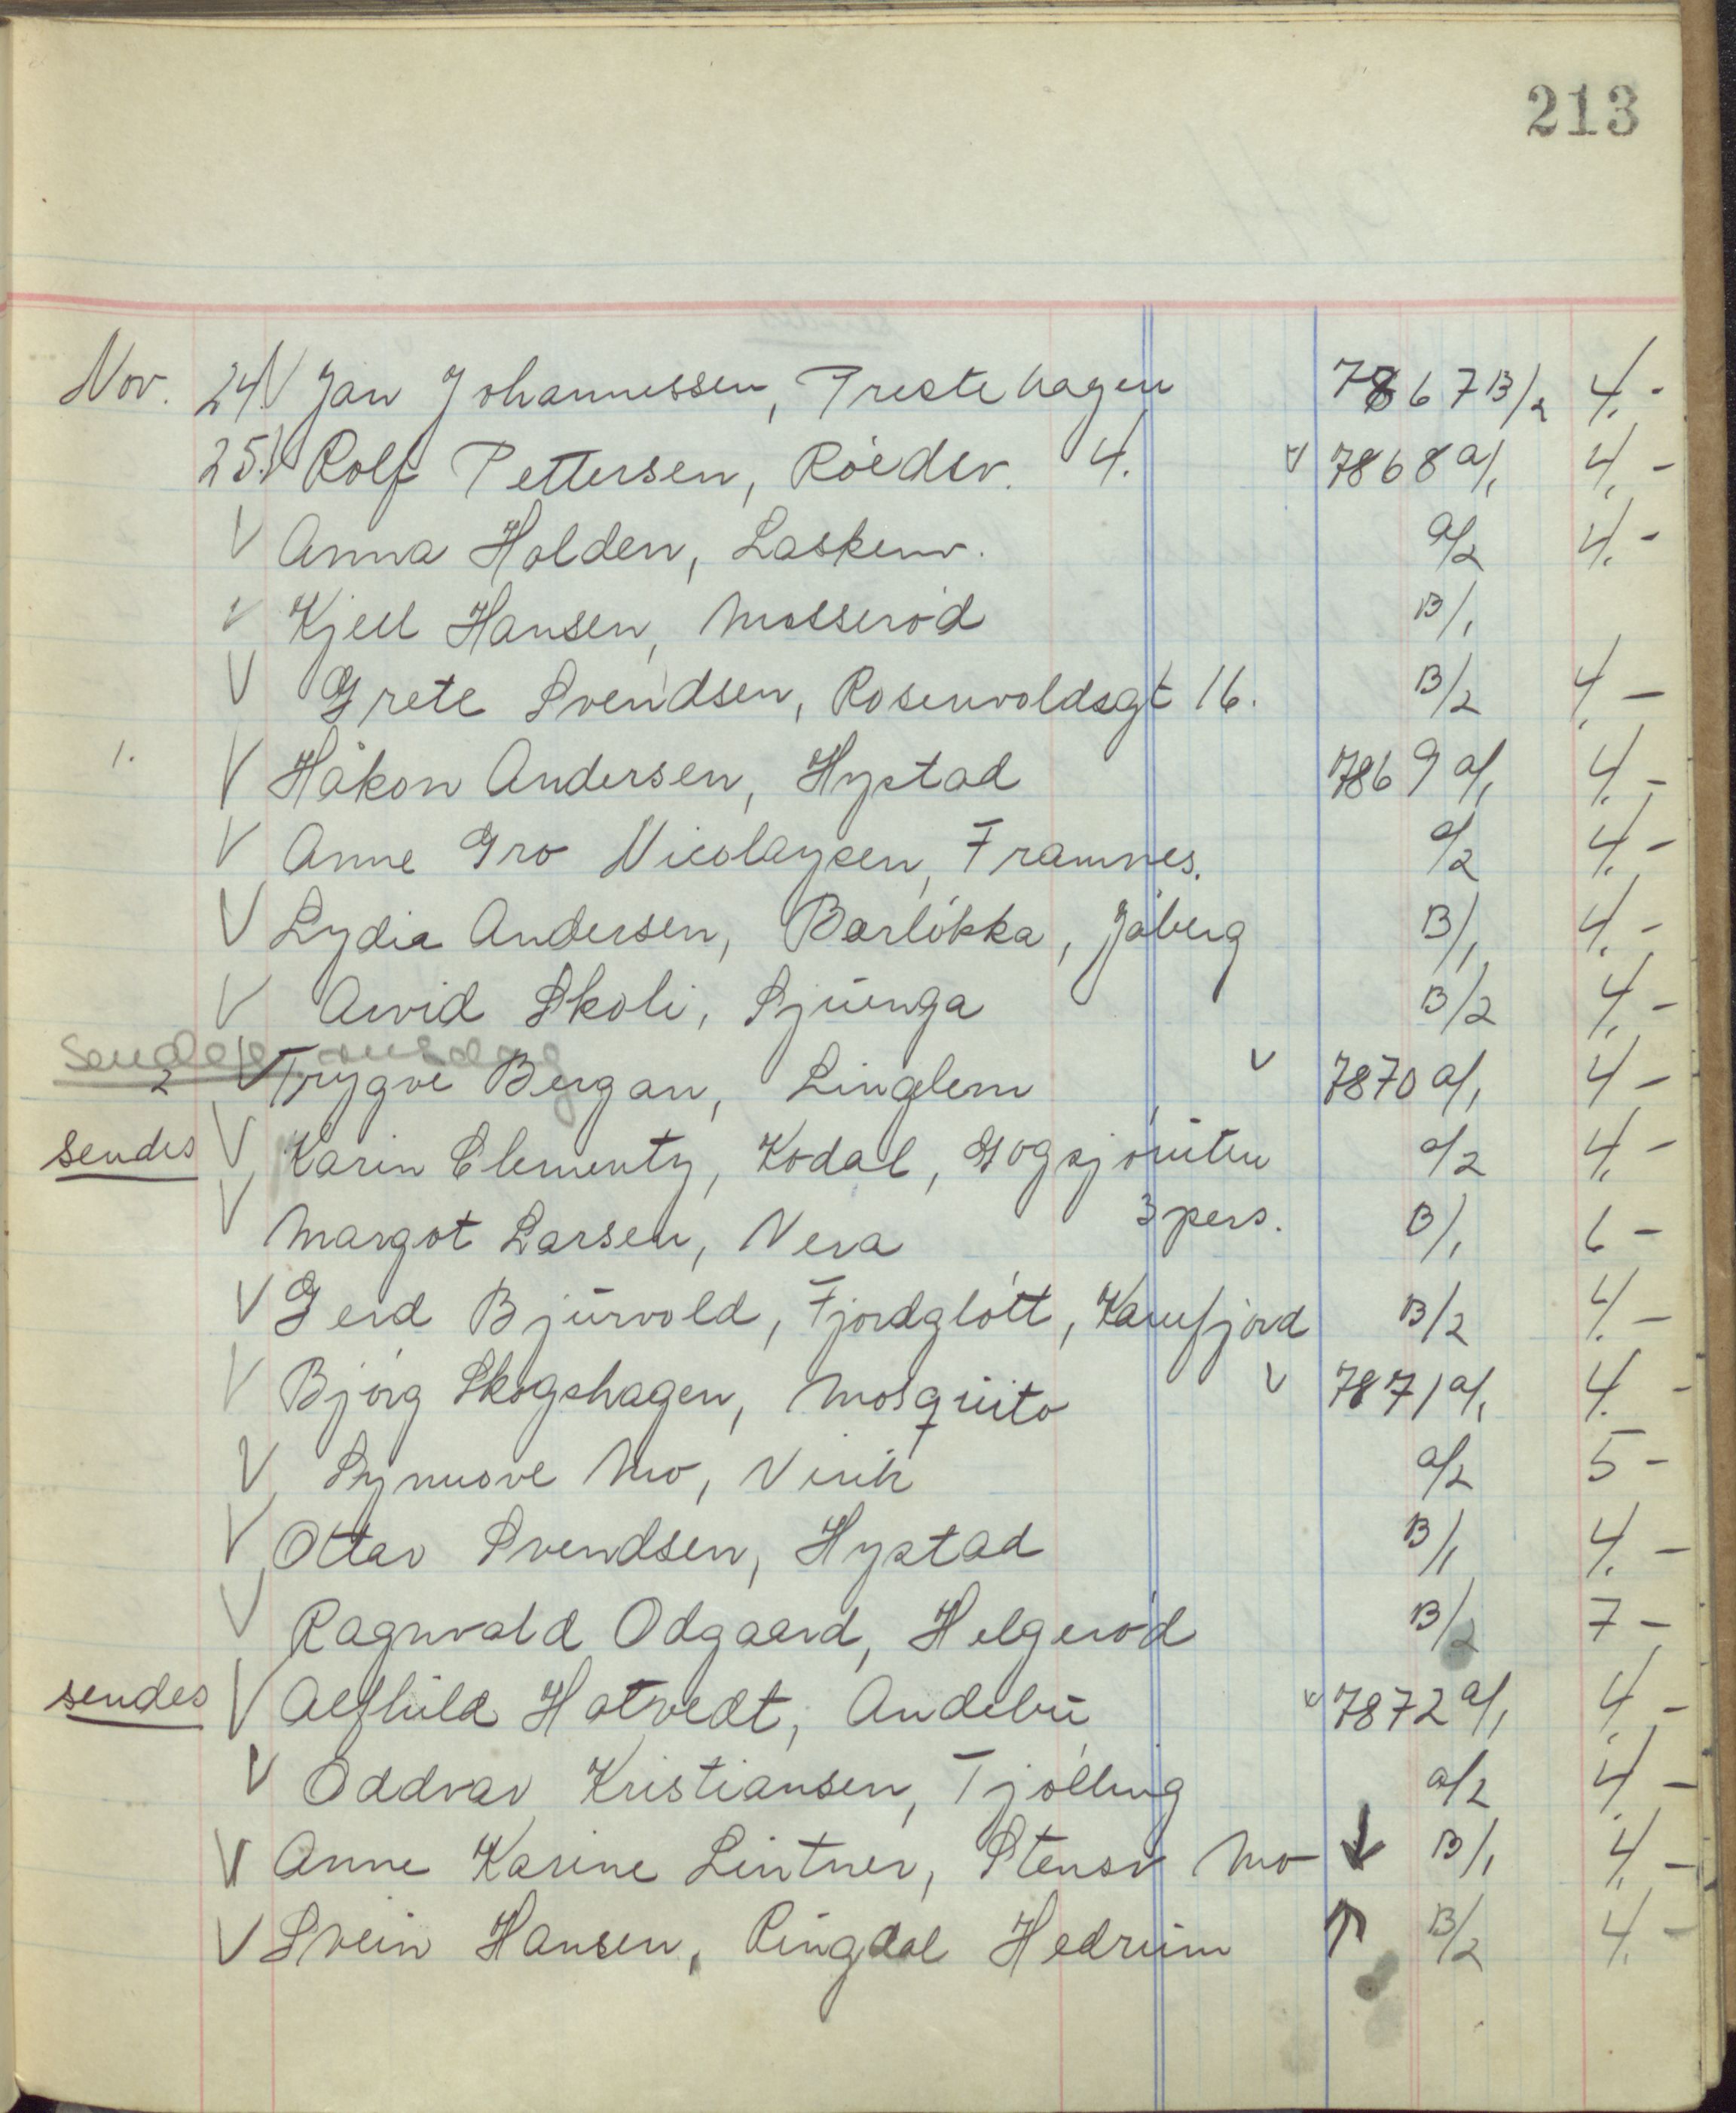 213
Nov. 24. V Jan Johannessen, Prestehagen 7867 B/2 4.-
25. V Rolf Pettersen, Röedsv. 4. V 7868 a/1 4.-
V Anna Holden, Laskenv. a/2 4.-
V Kjell Hansen, Mosseröd B/1
V Grete Svendsen, Rosenvoldsgt 16. B/2 4.-
1. V Håkon Andersen, Hystad 7869 a/1 4.-
V Anne Gro Nicolaysen, Framnes. a/2 4.-
V Lydia Andersen, Barlökka, Jåberg B/1 4.-
V Arvid Skoli, Sjuenga B/2 4.-
Sendes onsdag
2 V Trygve Bergan, Linglem V 7870 a/1 4-
sendes V Karin Clementz, Kodal, Gogsjö a/2 4.-
V Margot Larsen, Vera 3 pers. B/1 6-
V Gerd Bjurvold, Fjordglött, Kamfjord B/2 4.-
V Björg Skogshagen, Mosquito V 7871 a/1 4.-
V Synnove Mo, Virik a/2 5-
V Ottar Svendsen, Hystad B/1 4.-
V Ragnvald Odgaard, Helgeröd B/2 7-
sendes V Alfhild Hotvedt, Andebu V 7872 a/1 4.-
V Oddvar Kristiansen, Tjölling a/2 4-
V Anne Karine Lintner, Stensv Mo ↓ B/1 4.-
V Svein Hansen, Ringdal Hedrum ↑ B/2 4.-